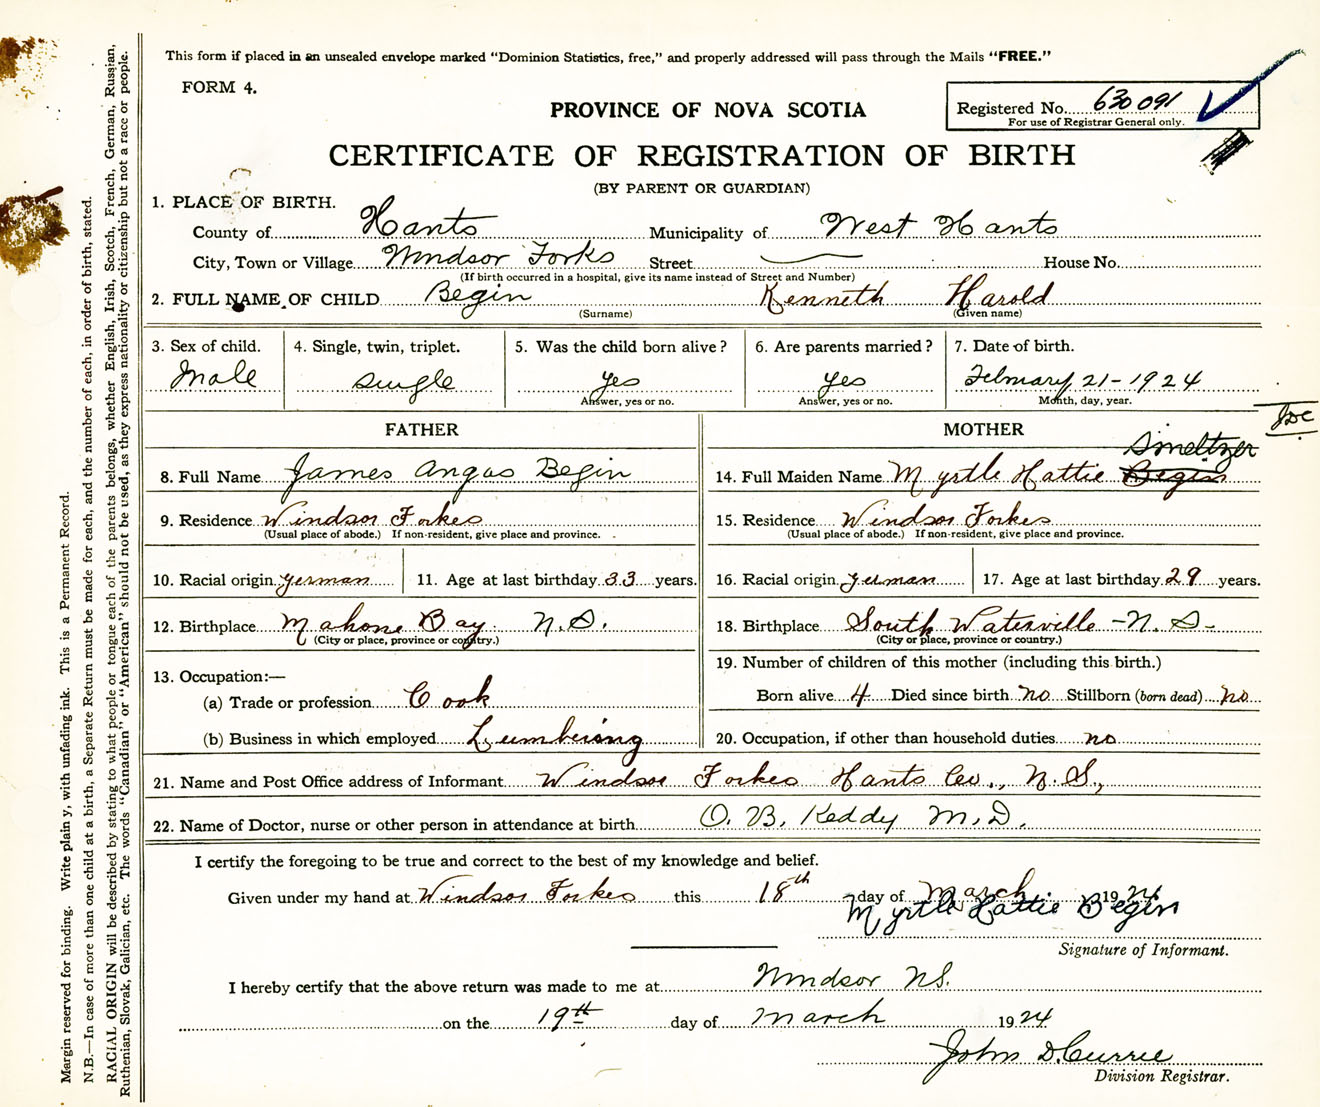 This form if placed in an unsealed envelope marked "Dominion Statistics, free," and properly addressed will pass through the Mails "FREE."
FORM 4.
Registered No. 630091
For use of Registrar General only.
PROVINCE OF NOVA SCOTIA
CERTIFICATE OF REGISTRATION OF BIRTH
(BY PARENT OR GUARDIAN)
1. PLACE OF BIRTH.
County of Hants Municipality of West Hants
City, Town or Village Windsor Forks Street House No.
(If birth occurred in a hospital, give its name instead of Street and Number)
2. FULL NAME OF CHILD Begin Kenneth Harold
(Surname) (Given name)
3. Sex of child. 4. Single, twin, triplet. 5. Was the child born alive? 6. Are parents married? 7. Date of birth.
Male single yes yes February 21-1924
Answer, yes or no. Answer, yes or no. Month, day, year.
FATHER
8. Full Name James Angas Begin
9. Residence Windsor Forkes
(Usual place of abode.) If non-resident, give place and province.
10. Racial origin German 11. Age at last birthday 33 years.
12. Birthplace Mahone Bay N.S.
(City or place, province or country.)
13. Occupation:—
(a) Trade or profession Cook
(b) Business in which employed Lumbering
MOTHER
Smeltzer
14. Full Maiden Name Myrtle Hattie Begin
15. Residence Windsor Forkes
(Usual place of abode.) If non-resident, give place and province.
16. Racial origin German 17. Age at last birthday 29 years.
18. Birthplace South Waterville - N. S-
(City or place, province or country.)
19. Number of children of this mother (including this birth.)
Born alive 4 Died since birth no Stillborn (born dead) no
20. Occupation, if other than household duties no
21. Name and Post Office address of Informant Windsor Forkes Hants Co., N.S.,
22. Name of Doctor, nurse or other person in attendance at birth O. B. Keddy M.D.
I certify the foregoing to be true and correct to the best of my knowledge and belief.
Given under my hand at Windsor Forkes this 18th day of March 1924
Myrtle Hattie Begin
Signature of Informant.
I hereby certify that the above return was made to me at Windsor NS.
on the 19th day of March 1924
John D. Currie
Division Registrar.
Margin reserved for binding. Write plain y, with unfading ink. This is a Permanent Record.
N.B.—In case of more than one child at a birth, a Separate Return must be made for each, and the number of each, in order of birth, stated.
RACIAL ORIGIN will be described by stating to what people or tongue each of the parents belongs, whether English, Irish, Scotch, French, German, Russian,
Ruthenian, Slovak, Galician, etc. The words "Canadian" or "American" should not be used, as they express nationality or citizenship but not a race or people.